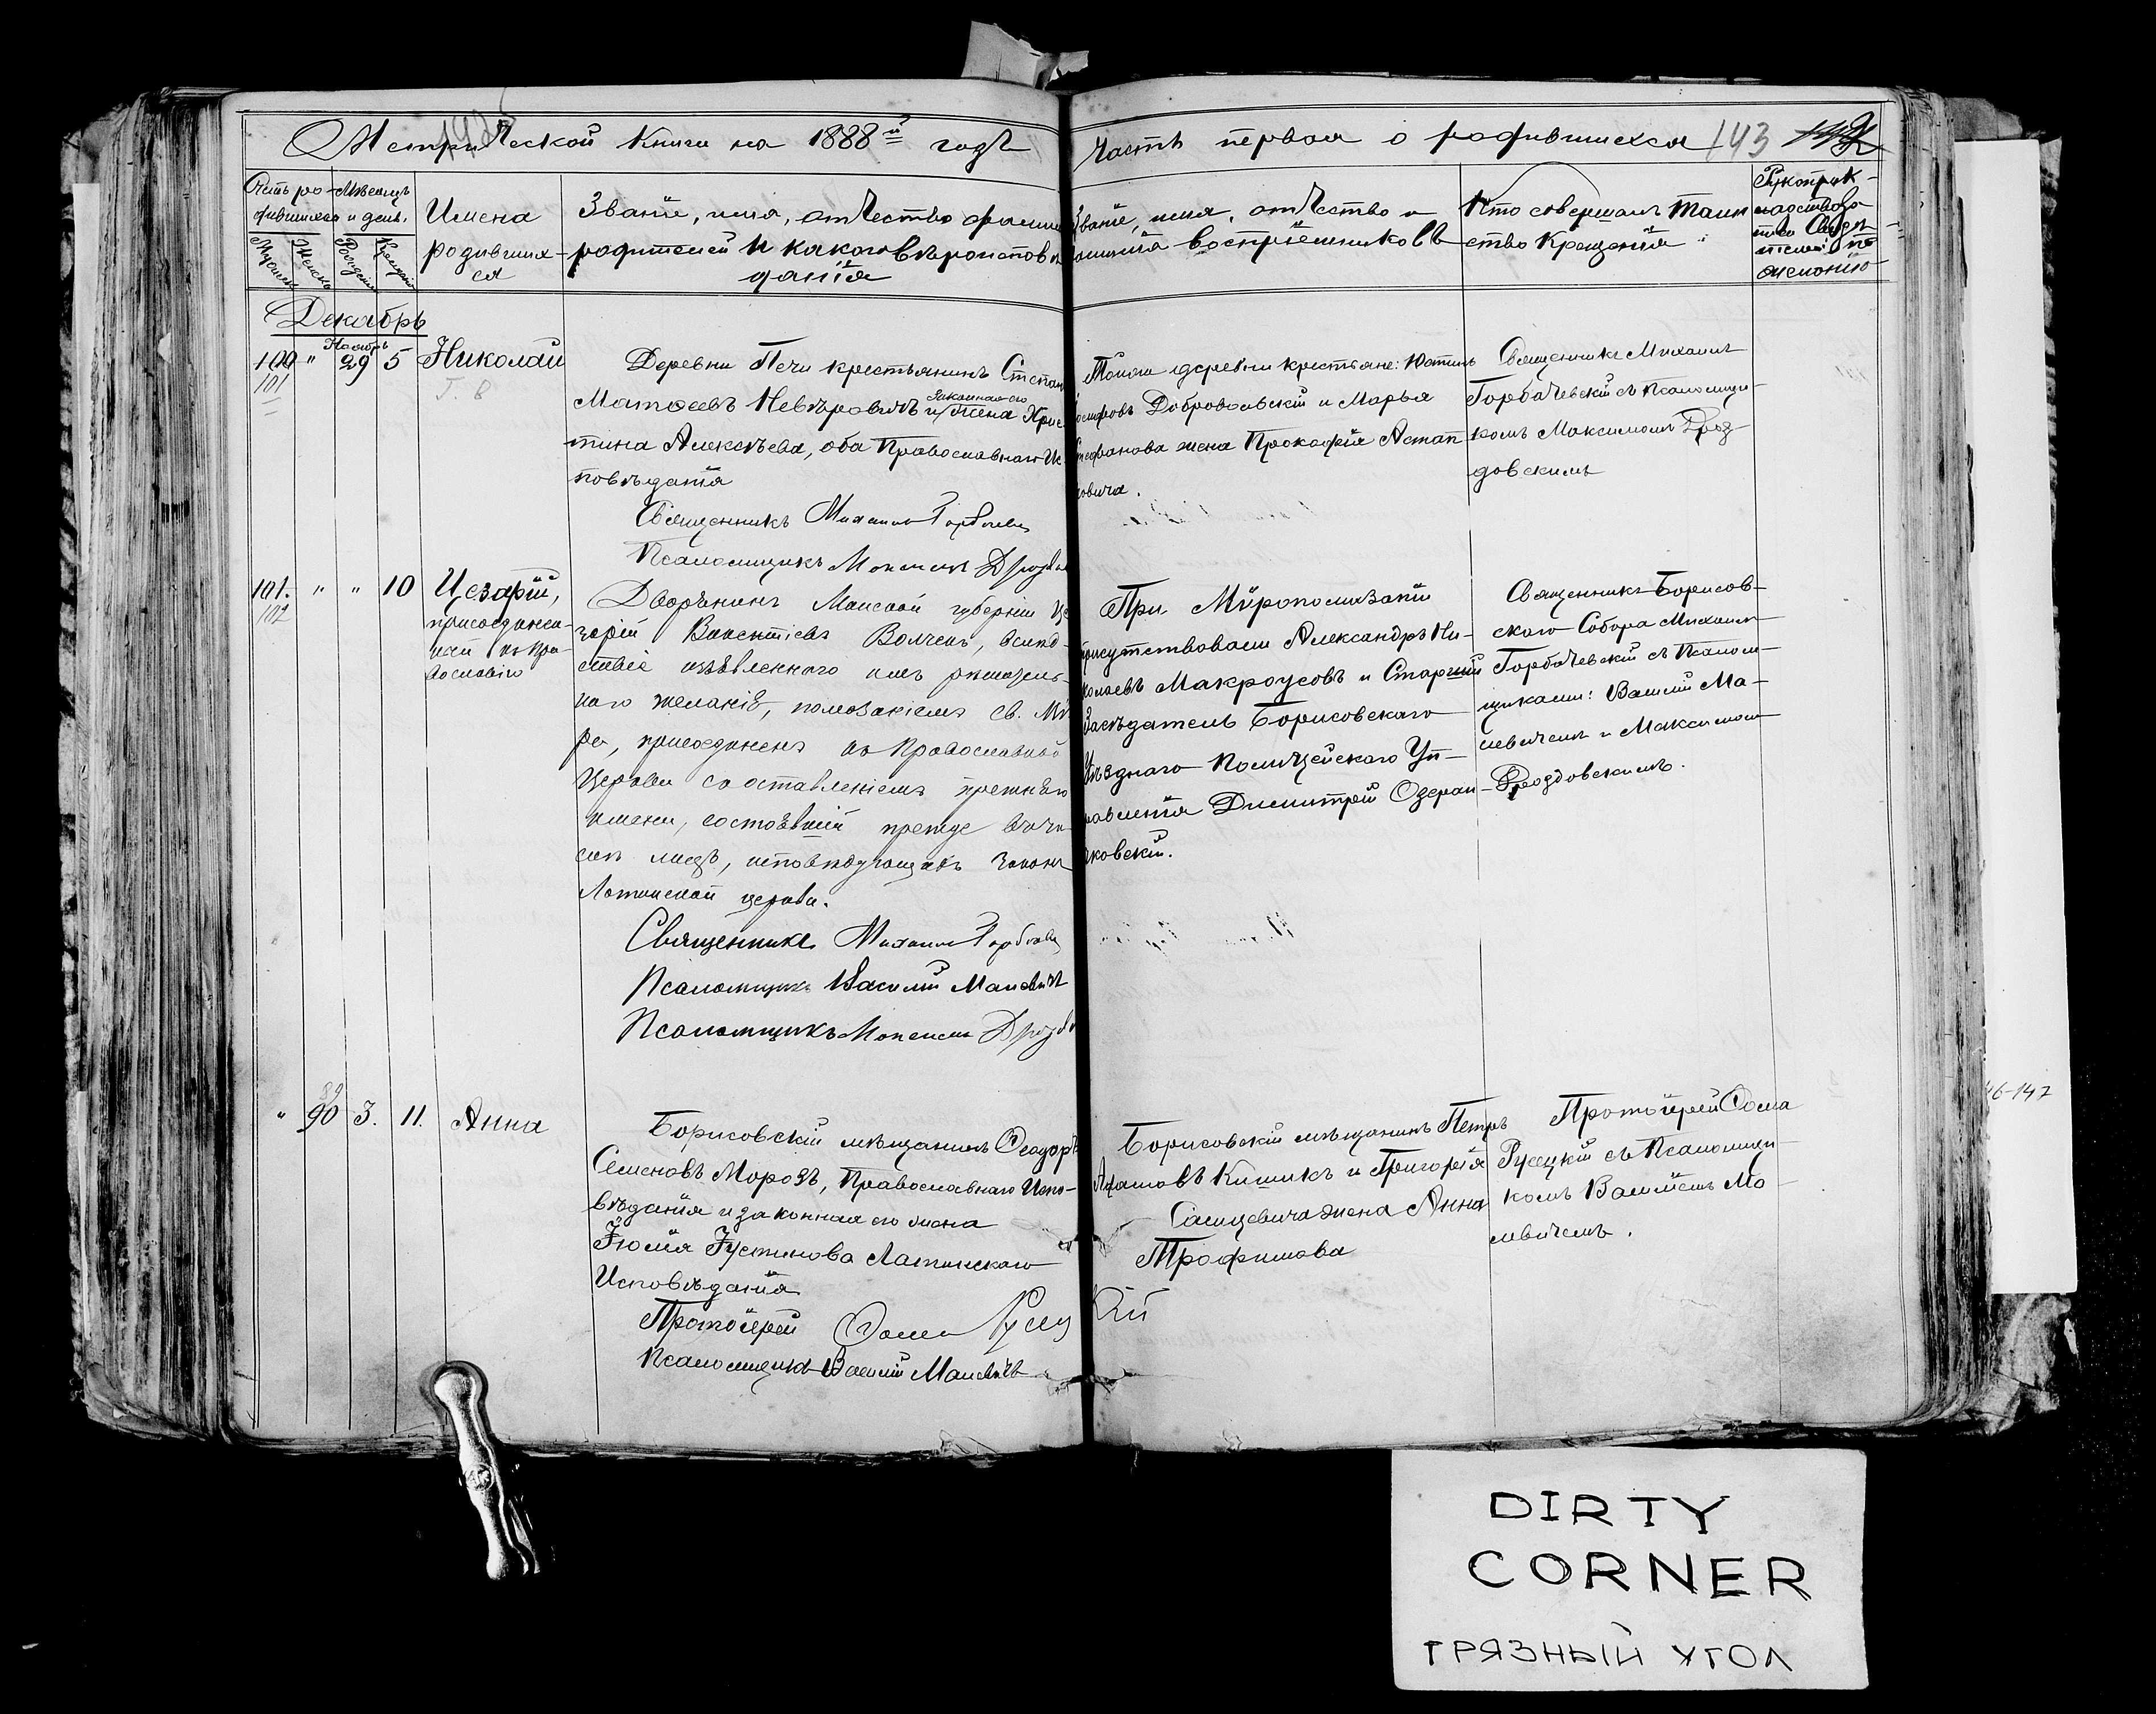 Метрической Книги на 1888й годъ
Часть первая о родившихся 143
Счетъ ро-
дившихся
Мужеска
Женска
Мѣсяцъ
и день.
Рожденія
Крещенія
Имена
родивших-
ся
Званіе, имя, отчество фамилі
родителей и какого вѣроисповѣ
данія
Званіе, имя, отчество и
фамилія воспріемниковъ
Кто совершалъ таин
ство Крещенія
Рукоприк-
ладство
Декабрь
Ноябрь
100 " 29 5 Николай
101
Деревни Печи крестьянинъ Степан
Матѳеевъ Невѣровичъ и законная его жена Хрис
тина Алексѣева, оба Православнаго Ис
повѣданія
Священникъ Михаилъ Горбачевск
Псаломщикъ Максимъ Дроздов
Тойже деревни крестьяне: Юстинъ
Іосифовъ Добровольскій и Марья
Стефанова жена Прокофія Астап
ковича.
Священникъ Михаилъ
Горбачевскій съ Псаломщи-
комъ Максимомъ Дроз-
довскимъ
101. " " 10 Цезарій,
102
присоединен-
ный къ Пра-
вославію
Дворянинъ Минской губерніи Це
зарій Викентіевъ Волчекъ, вслѣд-
ствіе изъявленнаго имъ рѣшитель-
наго желанія, помазаніемъ Св. Мѵ
ра, присоединенъ къ Православной
Церкви съ оставленіемъ прежняго
имени, состоявшій прежде въ чи
слѣ лицъ, исповѣдующихъ законъ
Латинской церкви.
Священникъ Михаилъ Горбачевс
Псаломщикъ Василій Малевичъ
Псаломщикъ Максимъ Дроздов
При Мѵропомазаніи
присутствовали Александръ Ни-
колаевъ Макроусовъ и Старшій
Засѣдатель Борисовскаго
Уѣзднаго Полицейскаго Уп-
равленія Димитрій Озеран-
ковскій.
Священникъ Борисов-
скаго Собора Михаилъ
Горбачевскій съ Псалом-
щиками: Василіемъ Ма-
левичемъ и Максимомъ
Дроздовскимъ.
89
" 90 3. 11. Анна
Борисовскій мѣщанинъ Ѳеодоръ
Семеновъ Морозъ, Православнаго Испо-
вѣданія и законная его жена
Юлія Іустинова Латинскаго
Исповѣданія
Протоіерей Ѳома Русецкій
Псаломщикъ Василій Малевичъ
Борисовскій мѣщанинъ Петръ
Адамовъ Кишикъ и Григорія
жена Анна
Трофимова
Протоіерей Ѳома
Русецкій съ Псаломщи-
комъ Василіемъ Ма-
левичемъ.
46-147
DIRTY
CORNER
ГРЯЗНЫЙ УГОЛ